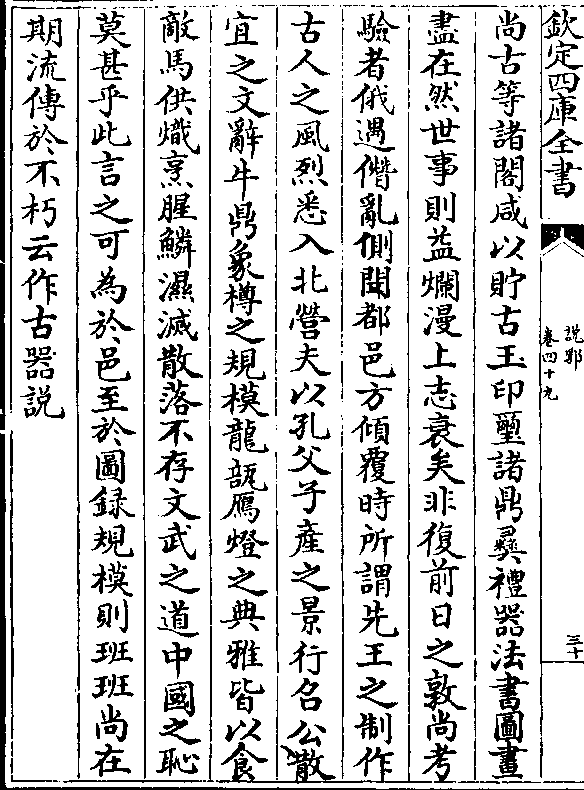 欽定四庫全書
說郛
卷四十九
三十
尚古等諸閣咸以貯古玉印璽諸鼎彝禮器法書圖畫
盡在然世事則益爛漫上志衰矣非復前日之敦尚考
驗者俄遇僭亂側聞都邑方傾覆時所謂先王之制作
古人之風烈悉入北營夫以孔父子產之景行召公散
宜之文辭牛鼎象樽之規模龍瓿鴈燈之典雅皆以食
敵馬供熾烹腥鱗濕滅散落不存文武之道中國之恥
莫甚乎此言之可為於邑至於圖録規模則班班尚在
期流傳於不朽云作古器説